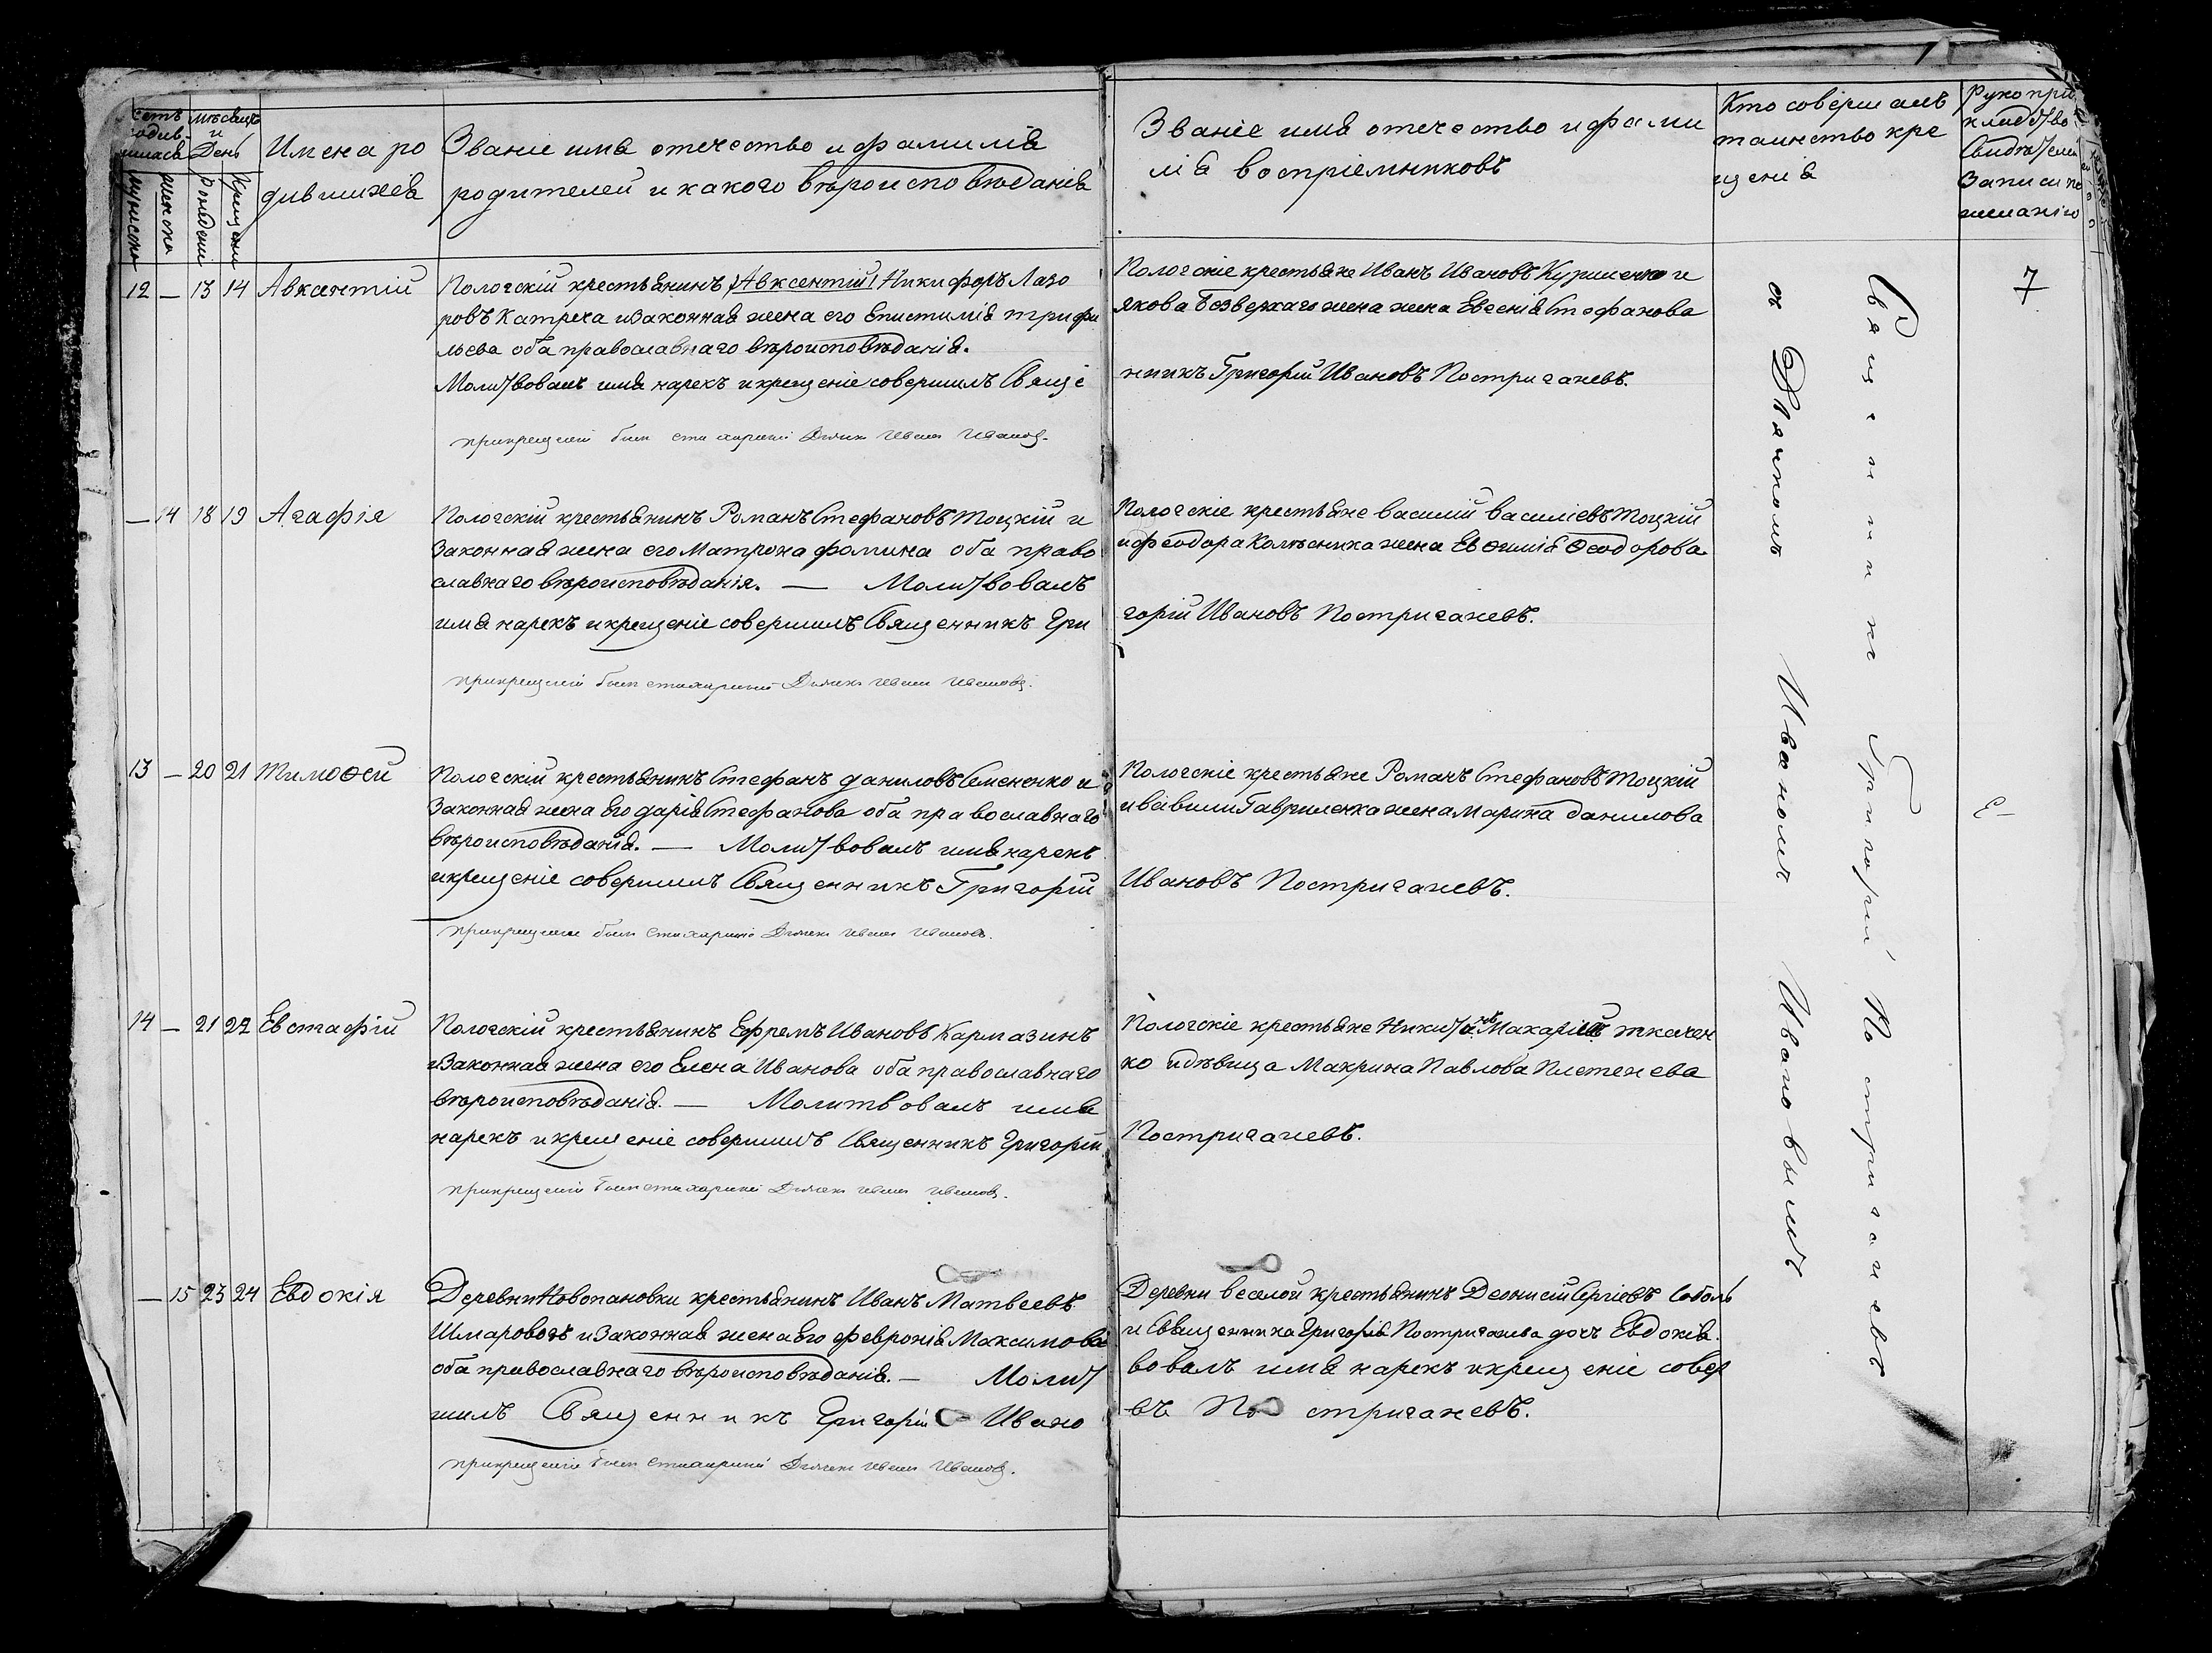 Счетъ родив-шихся
мужеска
женска
Мѣсяцъ и День
рожденія
крещенія
Имена ро
дившихся
Званіе имя отечество и фамилія
родителей и какого вѣроисповѣданія
Званіе имя отечество и фами
лія воспріемниковъ
Кто совершалъ
таинство кре
щенія
Рукопри
кладство
Свидѣтелей
Записи по
желанію
12 — 13 14 Авксентій
Пологскій крестьянинъ (Авксентій) Никифоръ Лазо
ровъ Катреча и законная жена его Епистимія трифи
льева оба православнаго вѣроисповѣданія.
Молитвовалъ имя нарекъ и крещеніе совершилъ Свяще
при крещеніи былъ стихарный Дьячекъ Иванъ Ивановъ.
Пологскіе крестьяне Иванъ Ивановъ Куриленко и
якова Безверхаго жена жена Евгенія Стефанова
нникъ Григорій Ивановъ Постригачевъ.
7
— 14 18 19 Агафія
Пологскій крестьянинъ Романъ Стефановъ Тоцкій и
Законная жена его Матрона фомина оба право
славнаго вѣроисповѣданія. — Молитвовалъ
имя нарекъ и крещеніе совершилъ Священникъ Гри
при крещеніи былъ стихарный Дьячекъ Иванъ Ивановъ.
Пологскіе крестьяне василій василіевъ Тоцкій
и феодора Колѣсника жена Евѳимія Ѳеодорова.
горій Ивановъ Постригачевъ.
13 — 20 21 Тимоѳей
Пологскій крестьянинъ Стефанъ даниловъ Семененко и
Законная жена Его дарія Стефанова оба православнаго
вѣроисповѣданія. — Молитвовалъ имя нарекъ
и крещеніе совершилъ Священникъ Григорій
при крещеніи былъ Стихарный Дьячекъ Иванъ Ивановъ.
Пологскіе крестьяне Романъ Стефановъ Тоцкій
и вавили Гавриленка жена Марина данилова
Ивановъ Постригачевъ.
14 — 21 22 Евстафій
Пологскій крестьянинъ Ефремъ Ивановъ Кармазинъ
и Законная жена его Елена Иванова оба православнаго
вѣроисповѣданія. — Молитвовалъ имя
нарекъ и крещеніе совершилъ Священникъ Григорій
при крещеніи былъ стихарный Дьячекъ Иванъ Ивановъ.
Пологскіе крестьяне Никита Макаріевъ ткачен
ко и дѣвица Макрина Павлова Плетенева
Постригачевъ.
— 15 23 24 Евдокія
Деревни Новопановки крестьянинъ Иванъ Матвеевъ
Шмаровозъ и Законная жена Его февронія Максимова
оба православнаго вѣроисповѣданія. — Молит
шилъ Священникъ Григорій Ивано
при крещеніи былъ Стихарный Дьячекъ Иванъ Ивановъ.
Деревни веселой крестьянинъ Деонисій Сергіевъ Соболь
и Священника Григорія Постригачева дочъ Евдокія.
вовалъ имя нарекъ и крещеніе совер
въ Постригачевъ.
Священникъ Григорій Постригачевъ
съ Дьячкомъ Иваномъ Ивановымъ